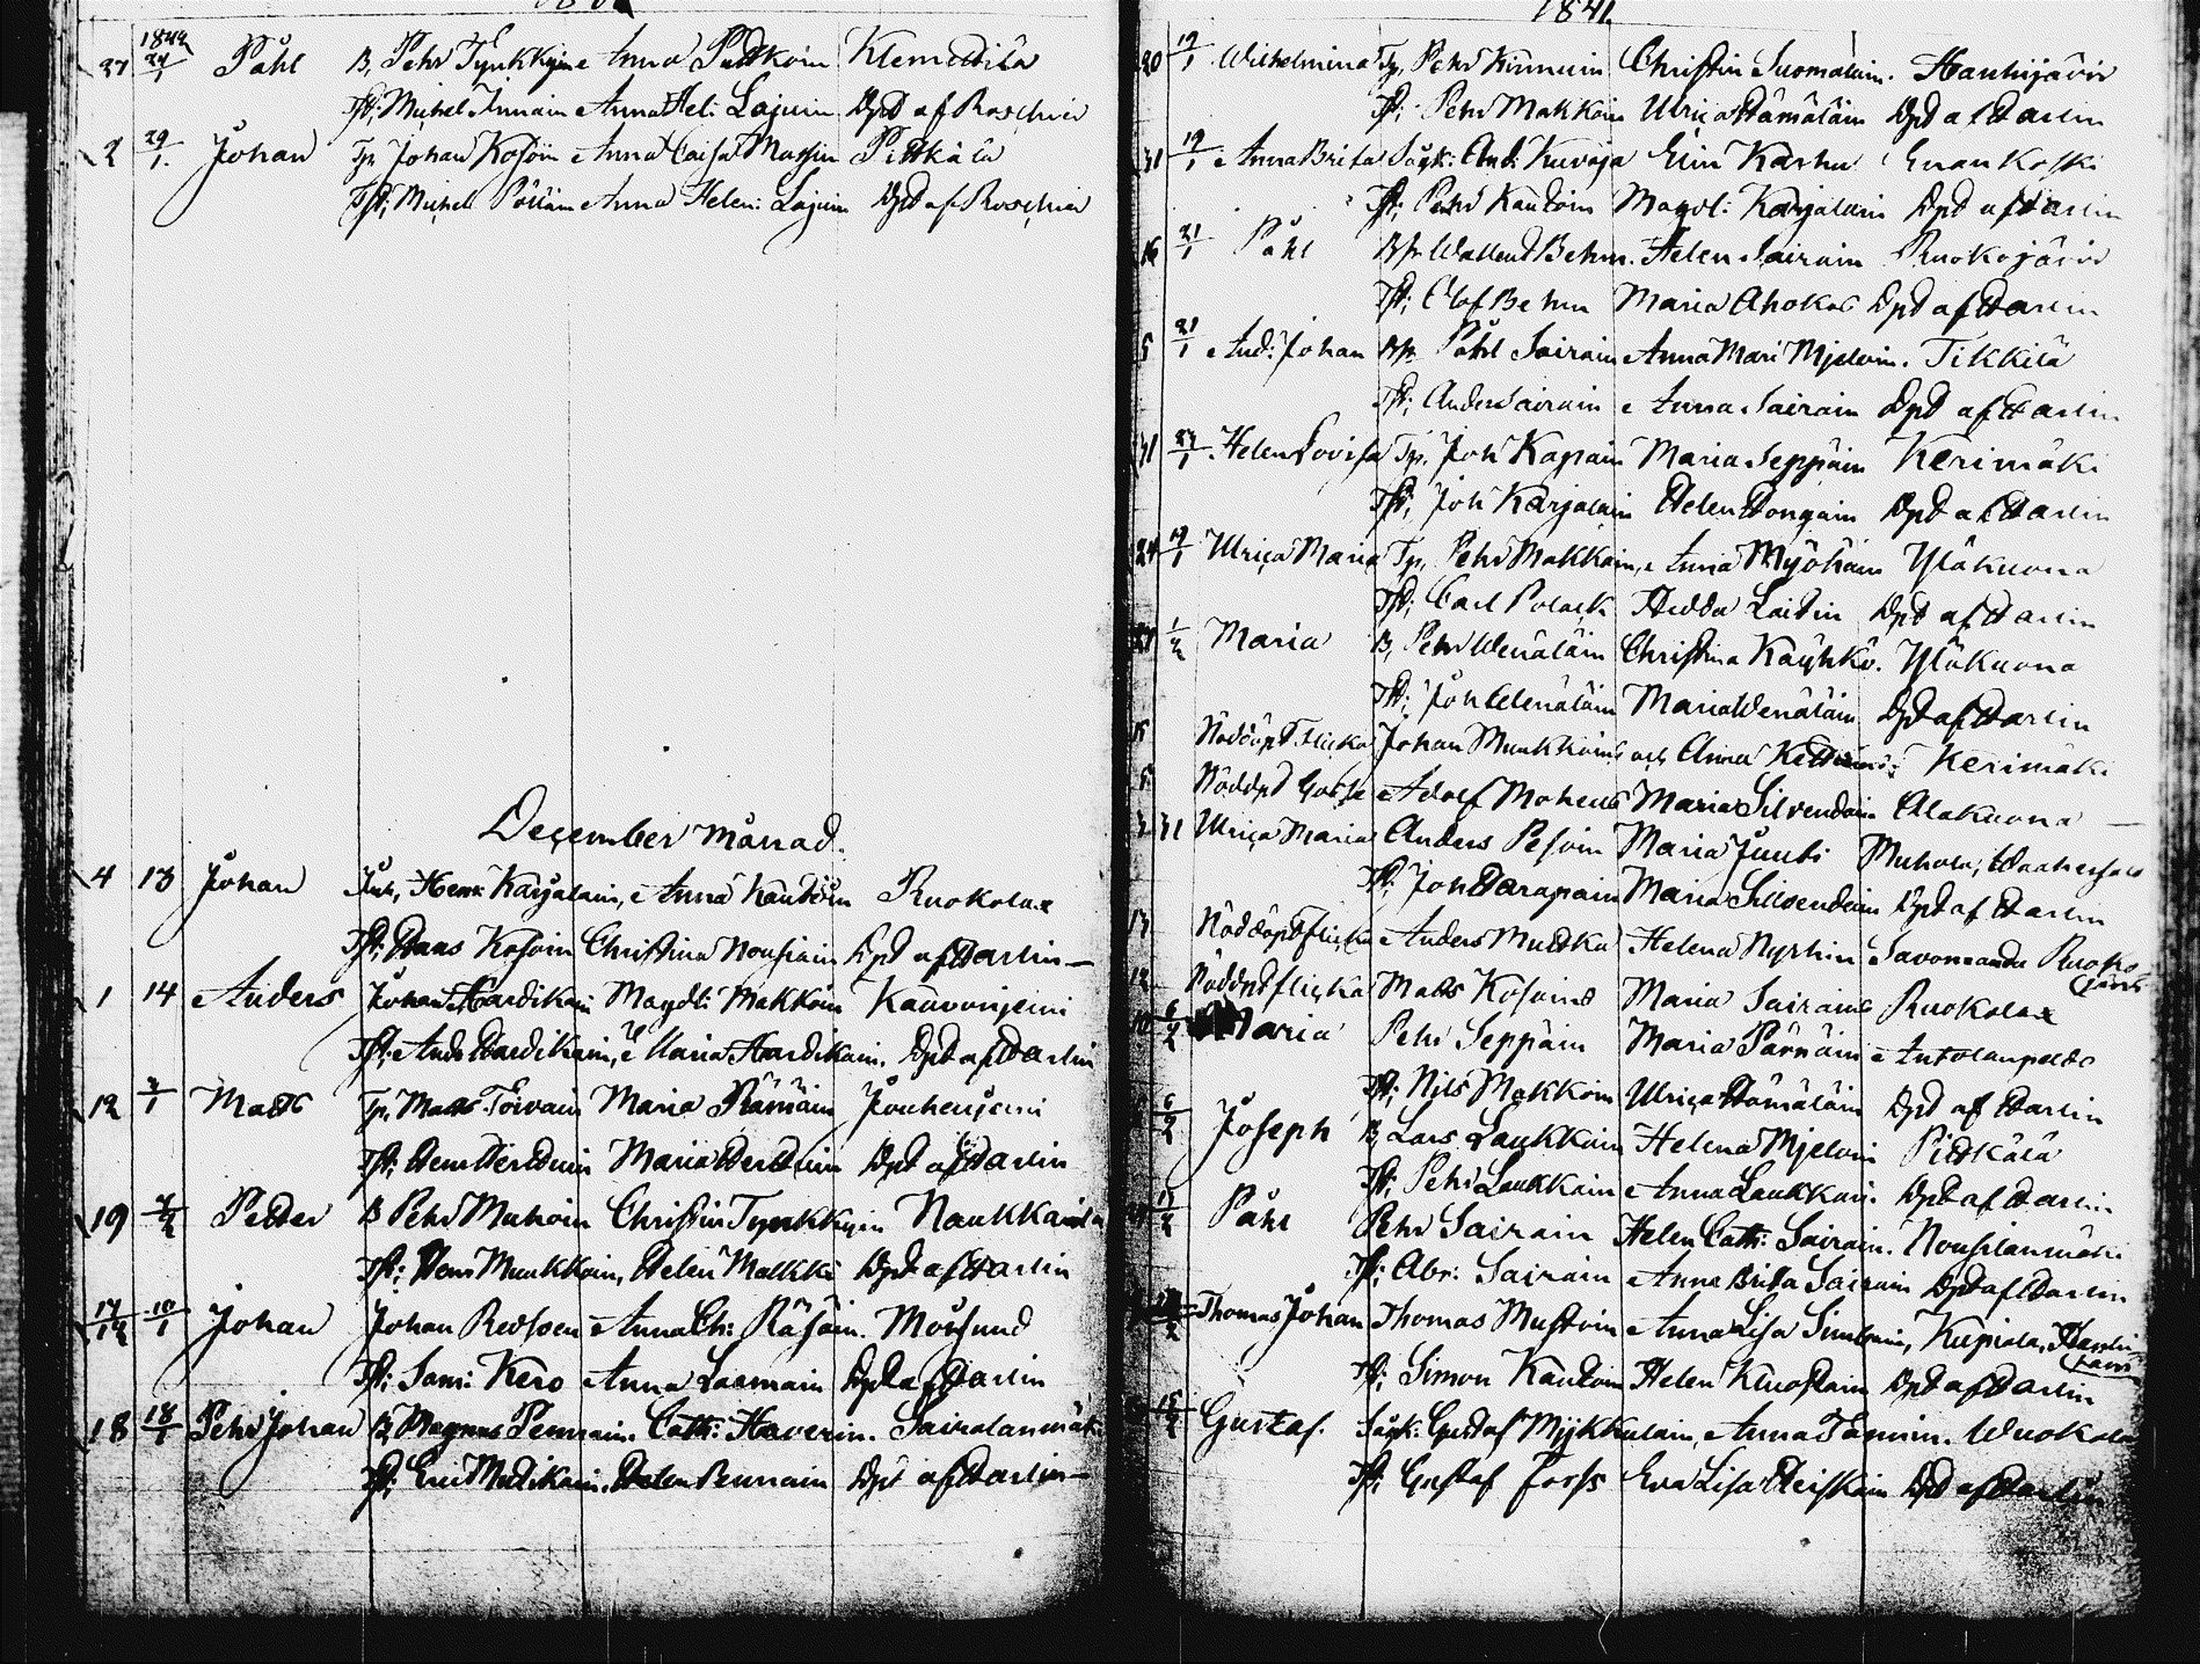 1842
27 24/1 Påhl B. Pehr Tynkkyin Anna Puttkoin Klemettilä
Tst; Michel Innain Anna Hel: Lajuin Dpt af Roschier
2 29/1. Johan Tp. Johan Kosoin Anna Caisa Massin Pittkälä
Tst; Michel Pöllain Anna Helen: Lajuin Dpt af Roschier
December Månad.
4 13 Johan Inh, Henr: Karjalain, Anna Kautoin Ruokolax
Tst; Staas Kosoin Christina Nousiain Dpt af Harlin
1 14 Anders Johan Hardikain Magdl: Makkoin Kauvonjemi
Tst; And: Hardikain, Maria Hardikain. Dpt af Harlin
12 3/1 Matts Tp. Matts Toivain Maria Rämäin Jouhenjemi
Tst; Henr Herttuin Maria Herttuin Dpt af Harlin
19 4/2 Petter B Pehr Muhoin Christin Tynkkyin Naukkarila
Tst; Henr Munkkoin, Helen Malkki Dpt af Harlin
17/12 10/1 Johan Johan Revsoen Anna Ch: Räsäin. Mörsund
Tst; Sam: Kero Anna Laamain Dpt af Harlin
18 18/1 Pehr Johan B Magnus Pennain. Cath: Haverin. Sairalanmäki
Tst; Eric Mutikain. Helen Pennain Dpt af Harlin
1841.
20 19/1 Wilhelmina Tp. Pehr Kinnuin Christin Suomalain. Hauhijärvi
Tst; Pehr Makkoin Ulrica Hämäläin Dpt af Harlin
31 19/1 Anna Brita Sågk: And: Kuvaja Elin Karhu Enonkoski
Tst; Pehr Kautoin Magdl: Karjalain Dpt af Harlin
16 21/1 Påhl Bp. Wallent Behm. Helen Sairain Ruokojärvi
Tst; Olof Behm Maria Ahokas Dpt af Harlin
5 21/1 And: Johan Bp. Påhl Sairain Anna Mari Mjeloin. Tikkilä
Tst; Anders Sairain Anna Sairain Dpt af Harlin
31 27/1 Helen Lovisa Tp. Joh Kapain Maria Seppäin Kerimäki
Tst; Joh Karjalain Helen Hongain Dpt af Harlin
24 29/1 Ulrica Maria Tp. Pehr Makkoin, Anna Myöhäin Yläkuona
Tst; Carl Polack Hedda Laitin Dpt af Harlin
27 1/2 Maria B. Pehr Wenäläin Christina Käyhkö. Yläkuona
Tst; Joh Wenäläin Maria Wenäläin Dpt af Harlin
15 Nöddöpt Flicka Johan Munkkoins och Anna Kettuins Kerimäki
5 Nöddpt Gosse Adolf Mohells Maria Silvendoin Alakuona
3 31 Ulrica Maria Anders Pesoin Maria Juuti Muhola, Waahersalo
Tst; Joh Harapain Maria Sillvendoin Dpt af Harlin
17 Nöddöpt flicka Anders Muttka Helena Nyrhin Savonranda Ruoko-järvi
12 Nöddpt flicka Matts Kosoins Maria Sairains Ruokolax
10 6/2 Maria Pehr Seppäin Maria Pärnäin Antolanpelto
Tst; Nils Makkoin Ulrica Hämäläin Dpt af Harlin
6/2 Joseph B Lars Laukkain Helena Mjeloin Pittkälä
Tst; Pehr Laukkain Anna Laukkain. Dpt af Harlin
13/2 Påhl Pehr Sairain Helen Cath: Sairain. Nousilanmäki
Tst; Abr: Sairain Anna Brita Sairain Dpt af Harlin
Thomas Johan Thomas Mustoin Anna Lisa Simbain, Kupiala,
Tst; Simon Kautoin Helen Kluostain Dpt af Harlin
15/2 Gustaf. Sågk: Gustaf Mykkulain, Anna Tamin. Wuokala
Tst; Gustaf Forss Eva Lisa Heiskain Dpt af Harlin